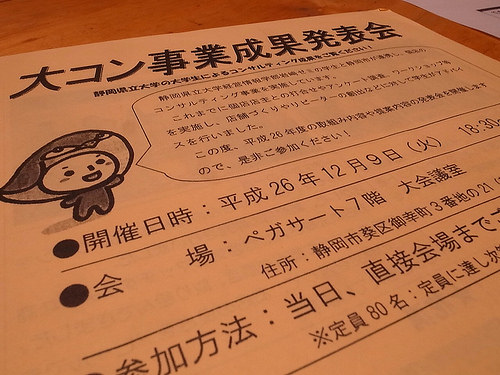 大コン事業成果発表会
静岡県立大学の大学生によるコンサルティング成果をご覧ください!
静岡県立大学経営情報学部岩崎ゼミの学生と静岡市が連携し、個店の
コンサルティング事業を実施しています。
これまでに個店店主との打合せやアンケート調査、ワークショップ等
を実施し、店舗づくりやリピーターの創出などに対して学生がアドバイ
スを行いました。
この度、平成26年度の取組み内容や提案内容の発表会を開催します
ので、是非ご参加ください!
●開催日時:平成26年12月9日(火) 18:30
●会 場:ペガサート7階 大会議室
住所:静岡市葵区御幸町3番地の21(
●参加方法:当日、直接会場まで
※定員80名:定員に達し次